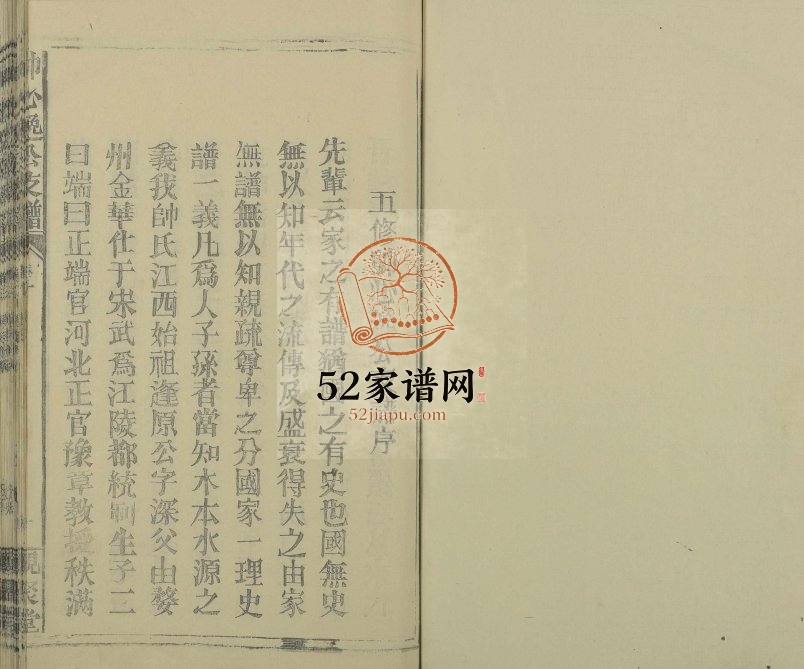 五修公序
先輩云家之有譜猶之有史也國無史
無以知年代之流傳及盛衰得失之由家
無譜無以知親疏尊卑之分國家一理史
譜一義凡爲人子孫者當知木本水源之
義我帥氏江西始祖逢原公字深父由婺
州金華仕于宋武爲江陵都統制生子二
曰端曰正端官河北正官豫章教授秩滿
公支譜
堂
52家谱网
52jiapu.com